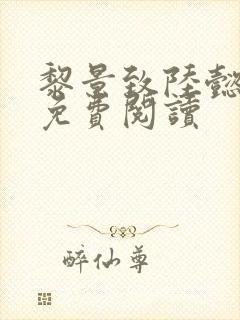 黎景致陸懿
免費閱讀
醉仙尊